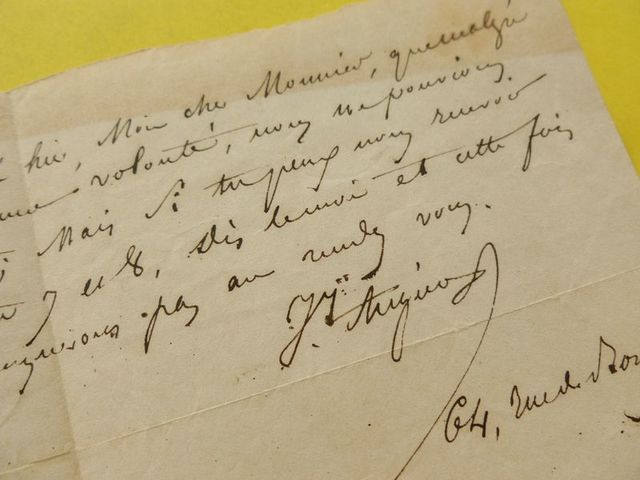 hier, Mon cher Monnier, que malgré
volonté, nous ne pouvions
Mais si tu peux nous recevoir
7 et 8, dès lundi et cette fois
pas au rendez vous.
64, rue de